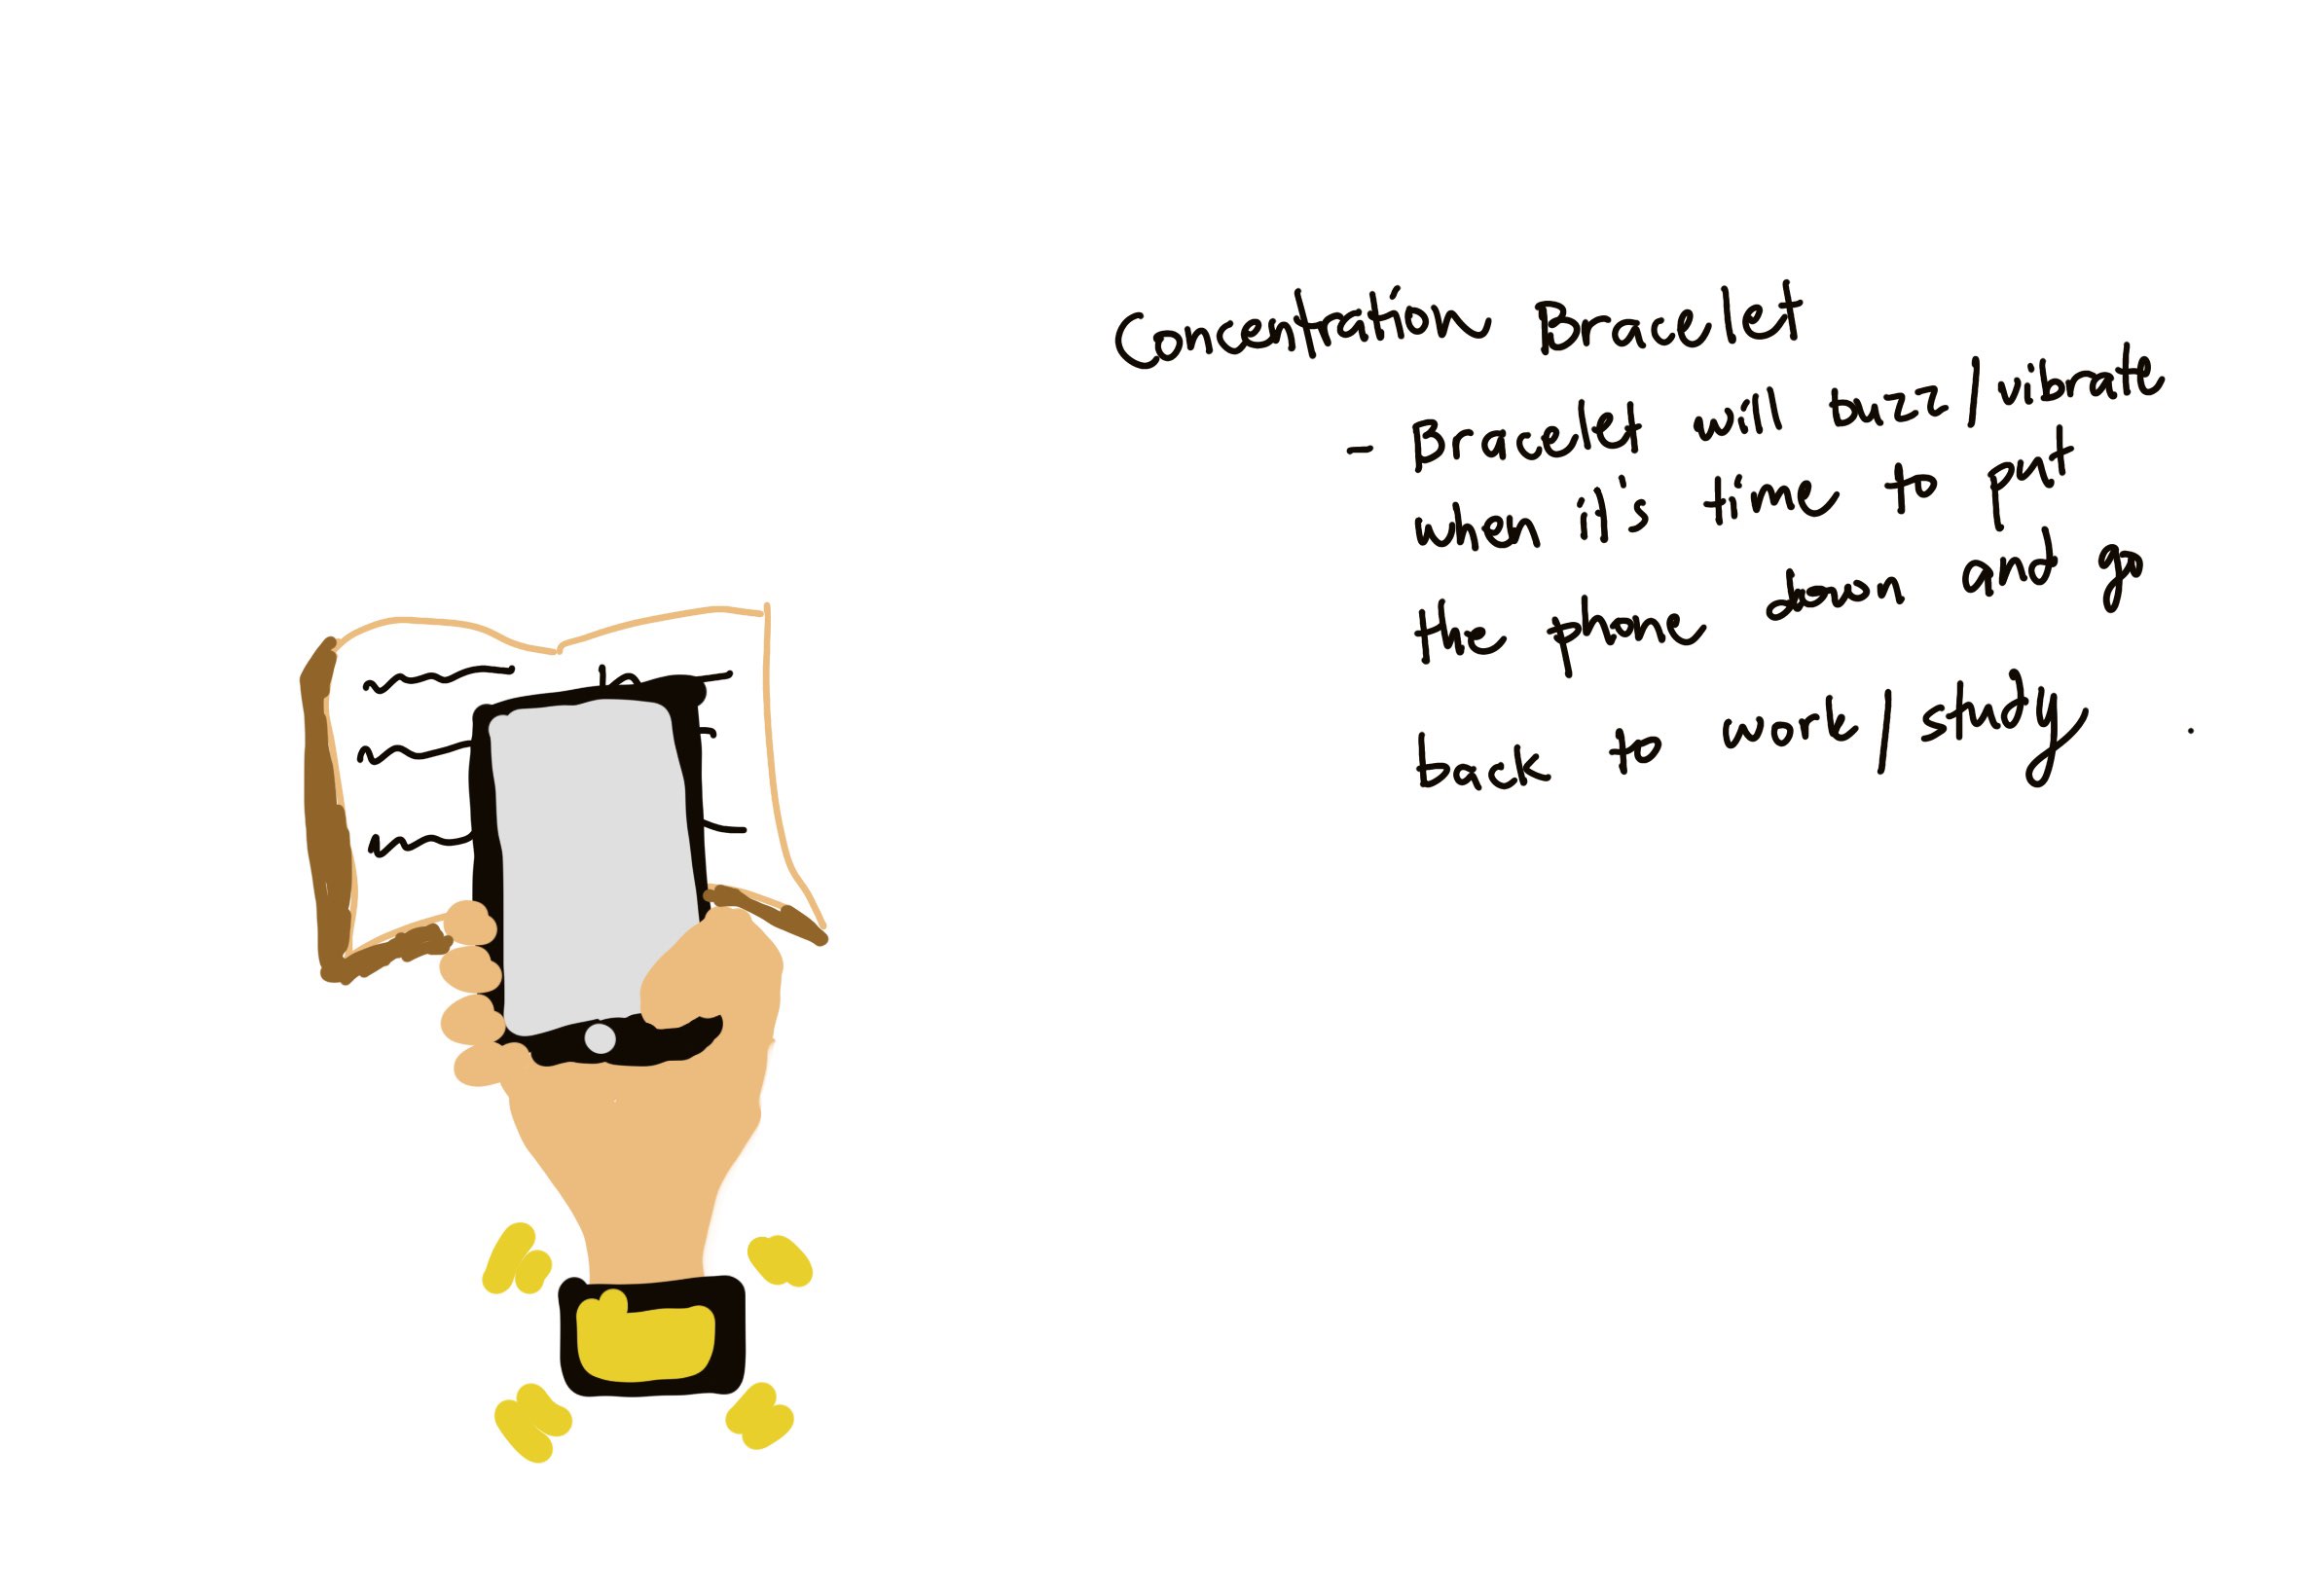 Concentration Bracelet
- Bracelet will buzz/vibrate
when it's time to put
the phone down and go
back to work/study